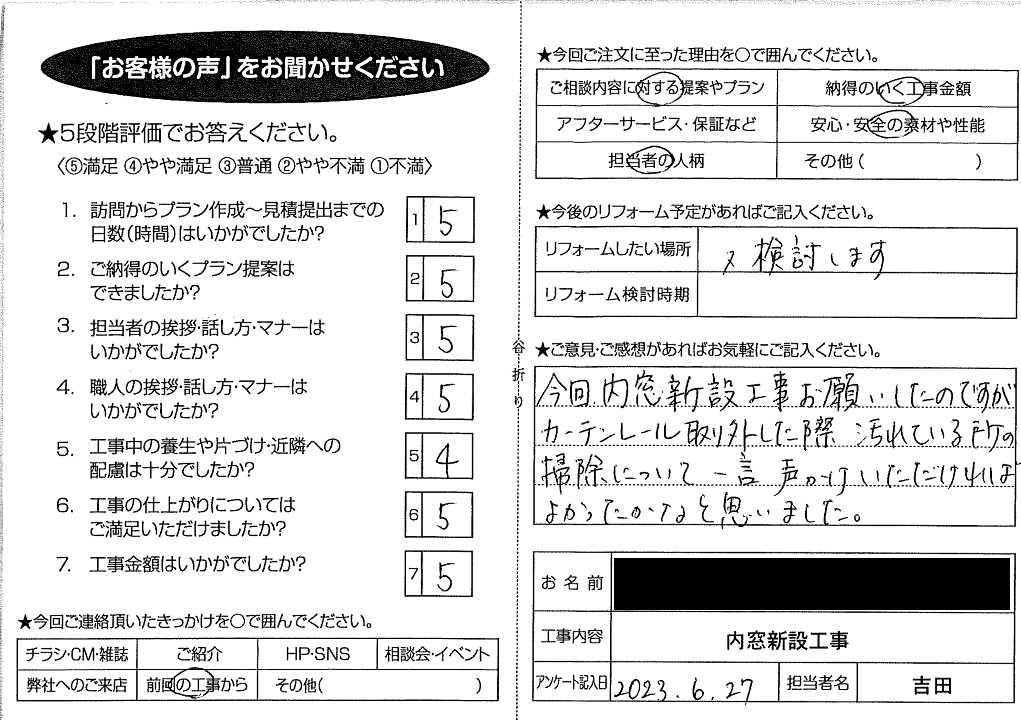 「お客様の声」をお聞かせください
★5段階評価でお答えください。
〈⑤満足 ④やや満足 ③普通 ②やや不満 ①不満〉
1. 訪問からプラン作成～見積提出までの
日数(時間)はいかがでしたか?
1 5
2. ご納得のいくプラン提案は
できましたか?
2 5
3. 担当者の挨拶・話し方・マナーは
いかがでしたか?
3 5
4. 職人の挨拶・話し方・マナーは
いかがでしたか?
4 5
5. 工事中の養生や片づけ・近隣への
配慮は十分でしたか?
5 4
6. 工事の仕上がりについては
ご満足いただけましたか?
6 5
7. 工事金額はいかがでしたか?
7 5
★今回ご連絡頂いたきっかけを〇で囲んでください。
チラシ・CM・雑誌 ご紹介 HP・SNS 相談会・イベント
弊社へのご来店 前回の工事から その他( )
谷折り
★今回ご注文に至った理由を〇で囲んでください。
ご相談内容に対する提案やプラン 納得のいく工事金額
アフターサービス・保証など 安心・安全の素材や性能
担当者の人柄 その他( )
★今後のリフォーム予定があればご記入ください。
リフォームしたい場所 又検討します
リフォーム検討時期
★ご意見・ご感想があればお気軽にご記入ください。
今回内窓新設工事お願いしたのですが
カーテンレール取り外した際 汚れている所の
掃除について一言声かけいただければ
よかったかなと思いました。
お名前
工事内容 内窓新設工事
アンケート記入日 2023.6.27 担当者名 吉田